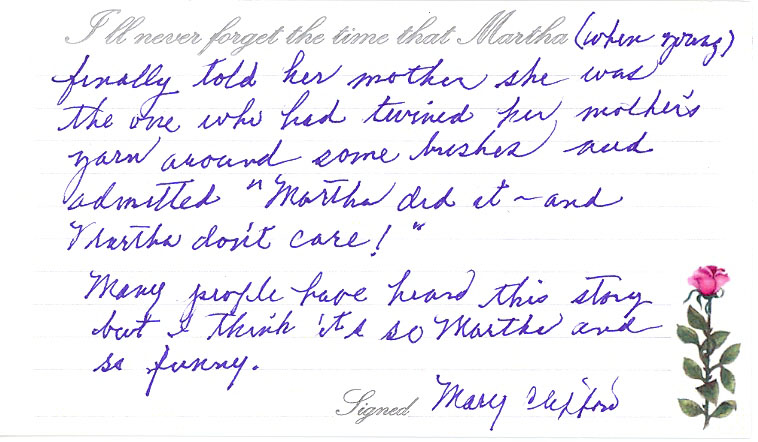 I'll never forget the time that Martha (when young)
finally told her mother she was
the one who had twined her mother's
yarn around some bushes and
admitted "Martha did it - and
Martha don't care!"
Many people have heard this story
but I think it's so Martha and
so funny.
Signed Mary Clifton